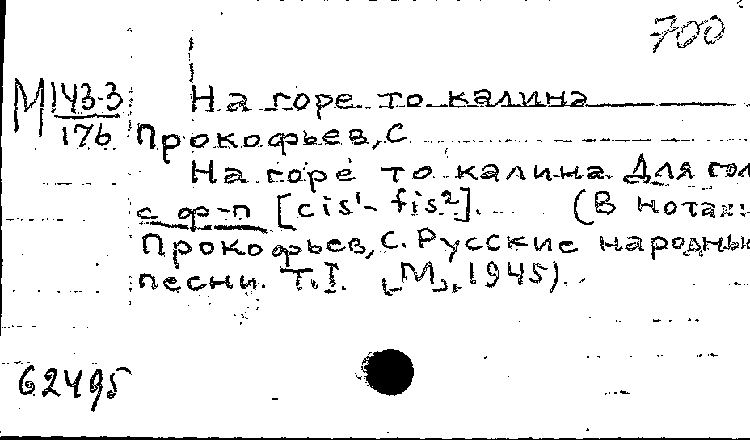 700
М 143-3 На горе то калина
176 Прокофьев, С
На горе то калина. Для гол
с ф-п [cis¹- fis²]. (В нотах:
Прокофьев, С. Русские народны
песни. Т.I. [М], 1945).
62495